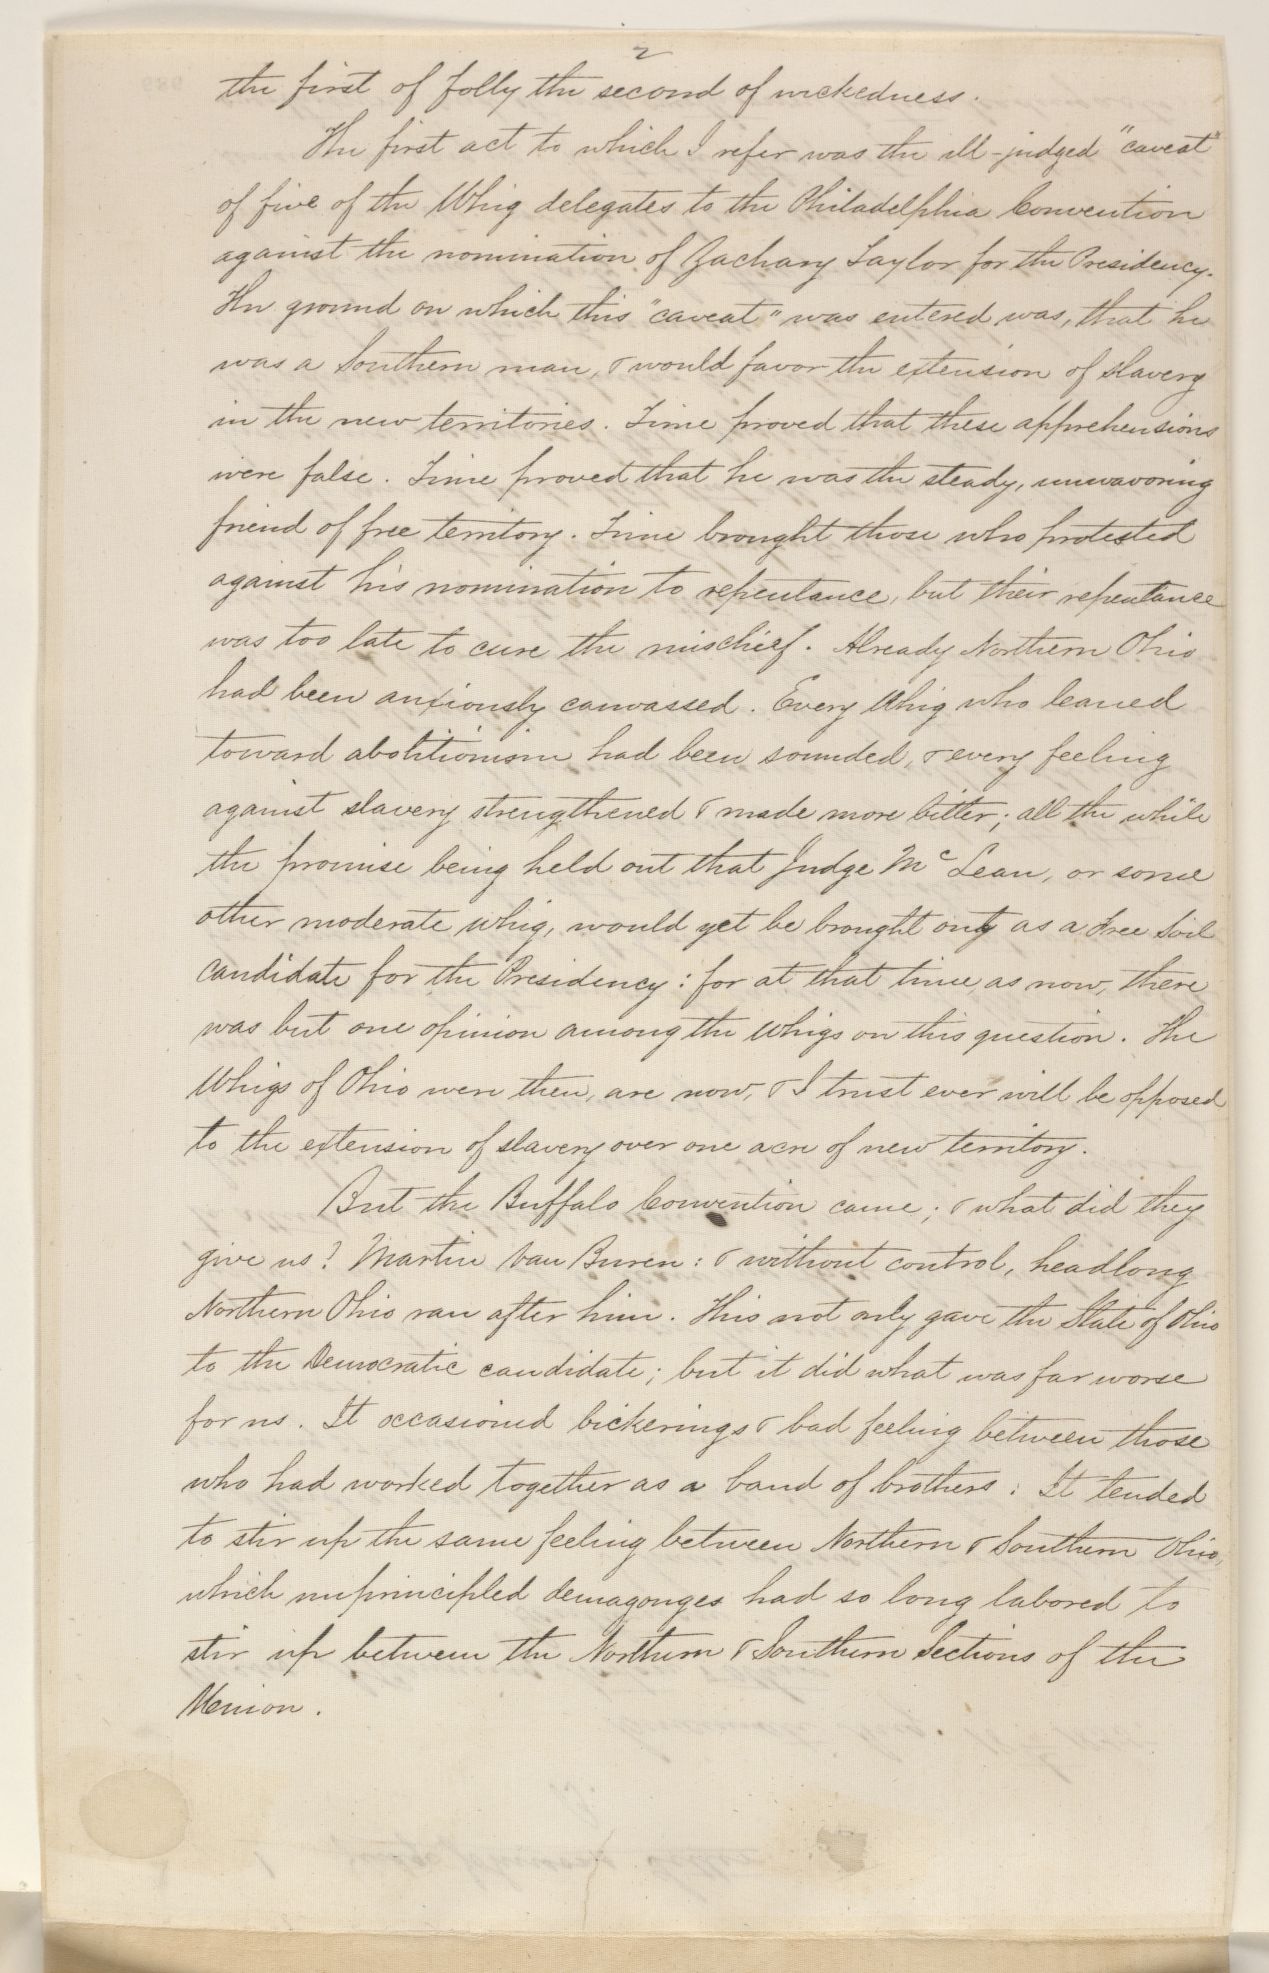 2
the first of folly the second of wickedness.
The first act to which I refer was the ill-judged "caveat"
of five of the Whig delegates to the Philadelphia Convention
against the nomination of Zachary Taylor for the Presidency.
The ground on which this "caveat" was entered was, that he
was a Southern man, & would favor the extension of slavery
in the new territories. Time proved that these apprehensions
were false. Time proved that he was the steady, unwavoring
friend of free territory. Time brought those who protested
against his nomination to repentance, but their repentance
was too late to cure the mischief. Already Northern Ohio
had been anxiously canvassed. Every Whig who leaned
toward abolitionism had been sounded, & every feeling
against slavery strengthened & made more bitter; all the while
the promise being held out that Judge McLean, or some
other moderate whig, would yet be brought out as a Free Soil
candidate for the Presidency: for at that time, as now, there
was but one opinion among the Whigs on this question. The
Whigs of Ohio were then, are now, & I trust ever will be opposed
to the extension of slavery over one acre of new territory.
But the Buffalo Convention came; & what did they
give us? Martin Van Buren: & without control, headlong
Northern Ohio ran after him. This not only gave the State of Ohio
to the Democratic candidate; but it did what was far worse
for us. It occasioned bickerings & bad feeling between those
who had worked together as a band of brothers: It tended
to stir up the same feeling between Northern & Southern Ohio,
which unprincipled demagouges had so long labored to
stir up between the Northern & Southern Sections of the
Union.